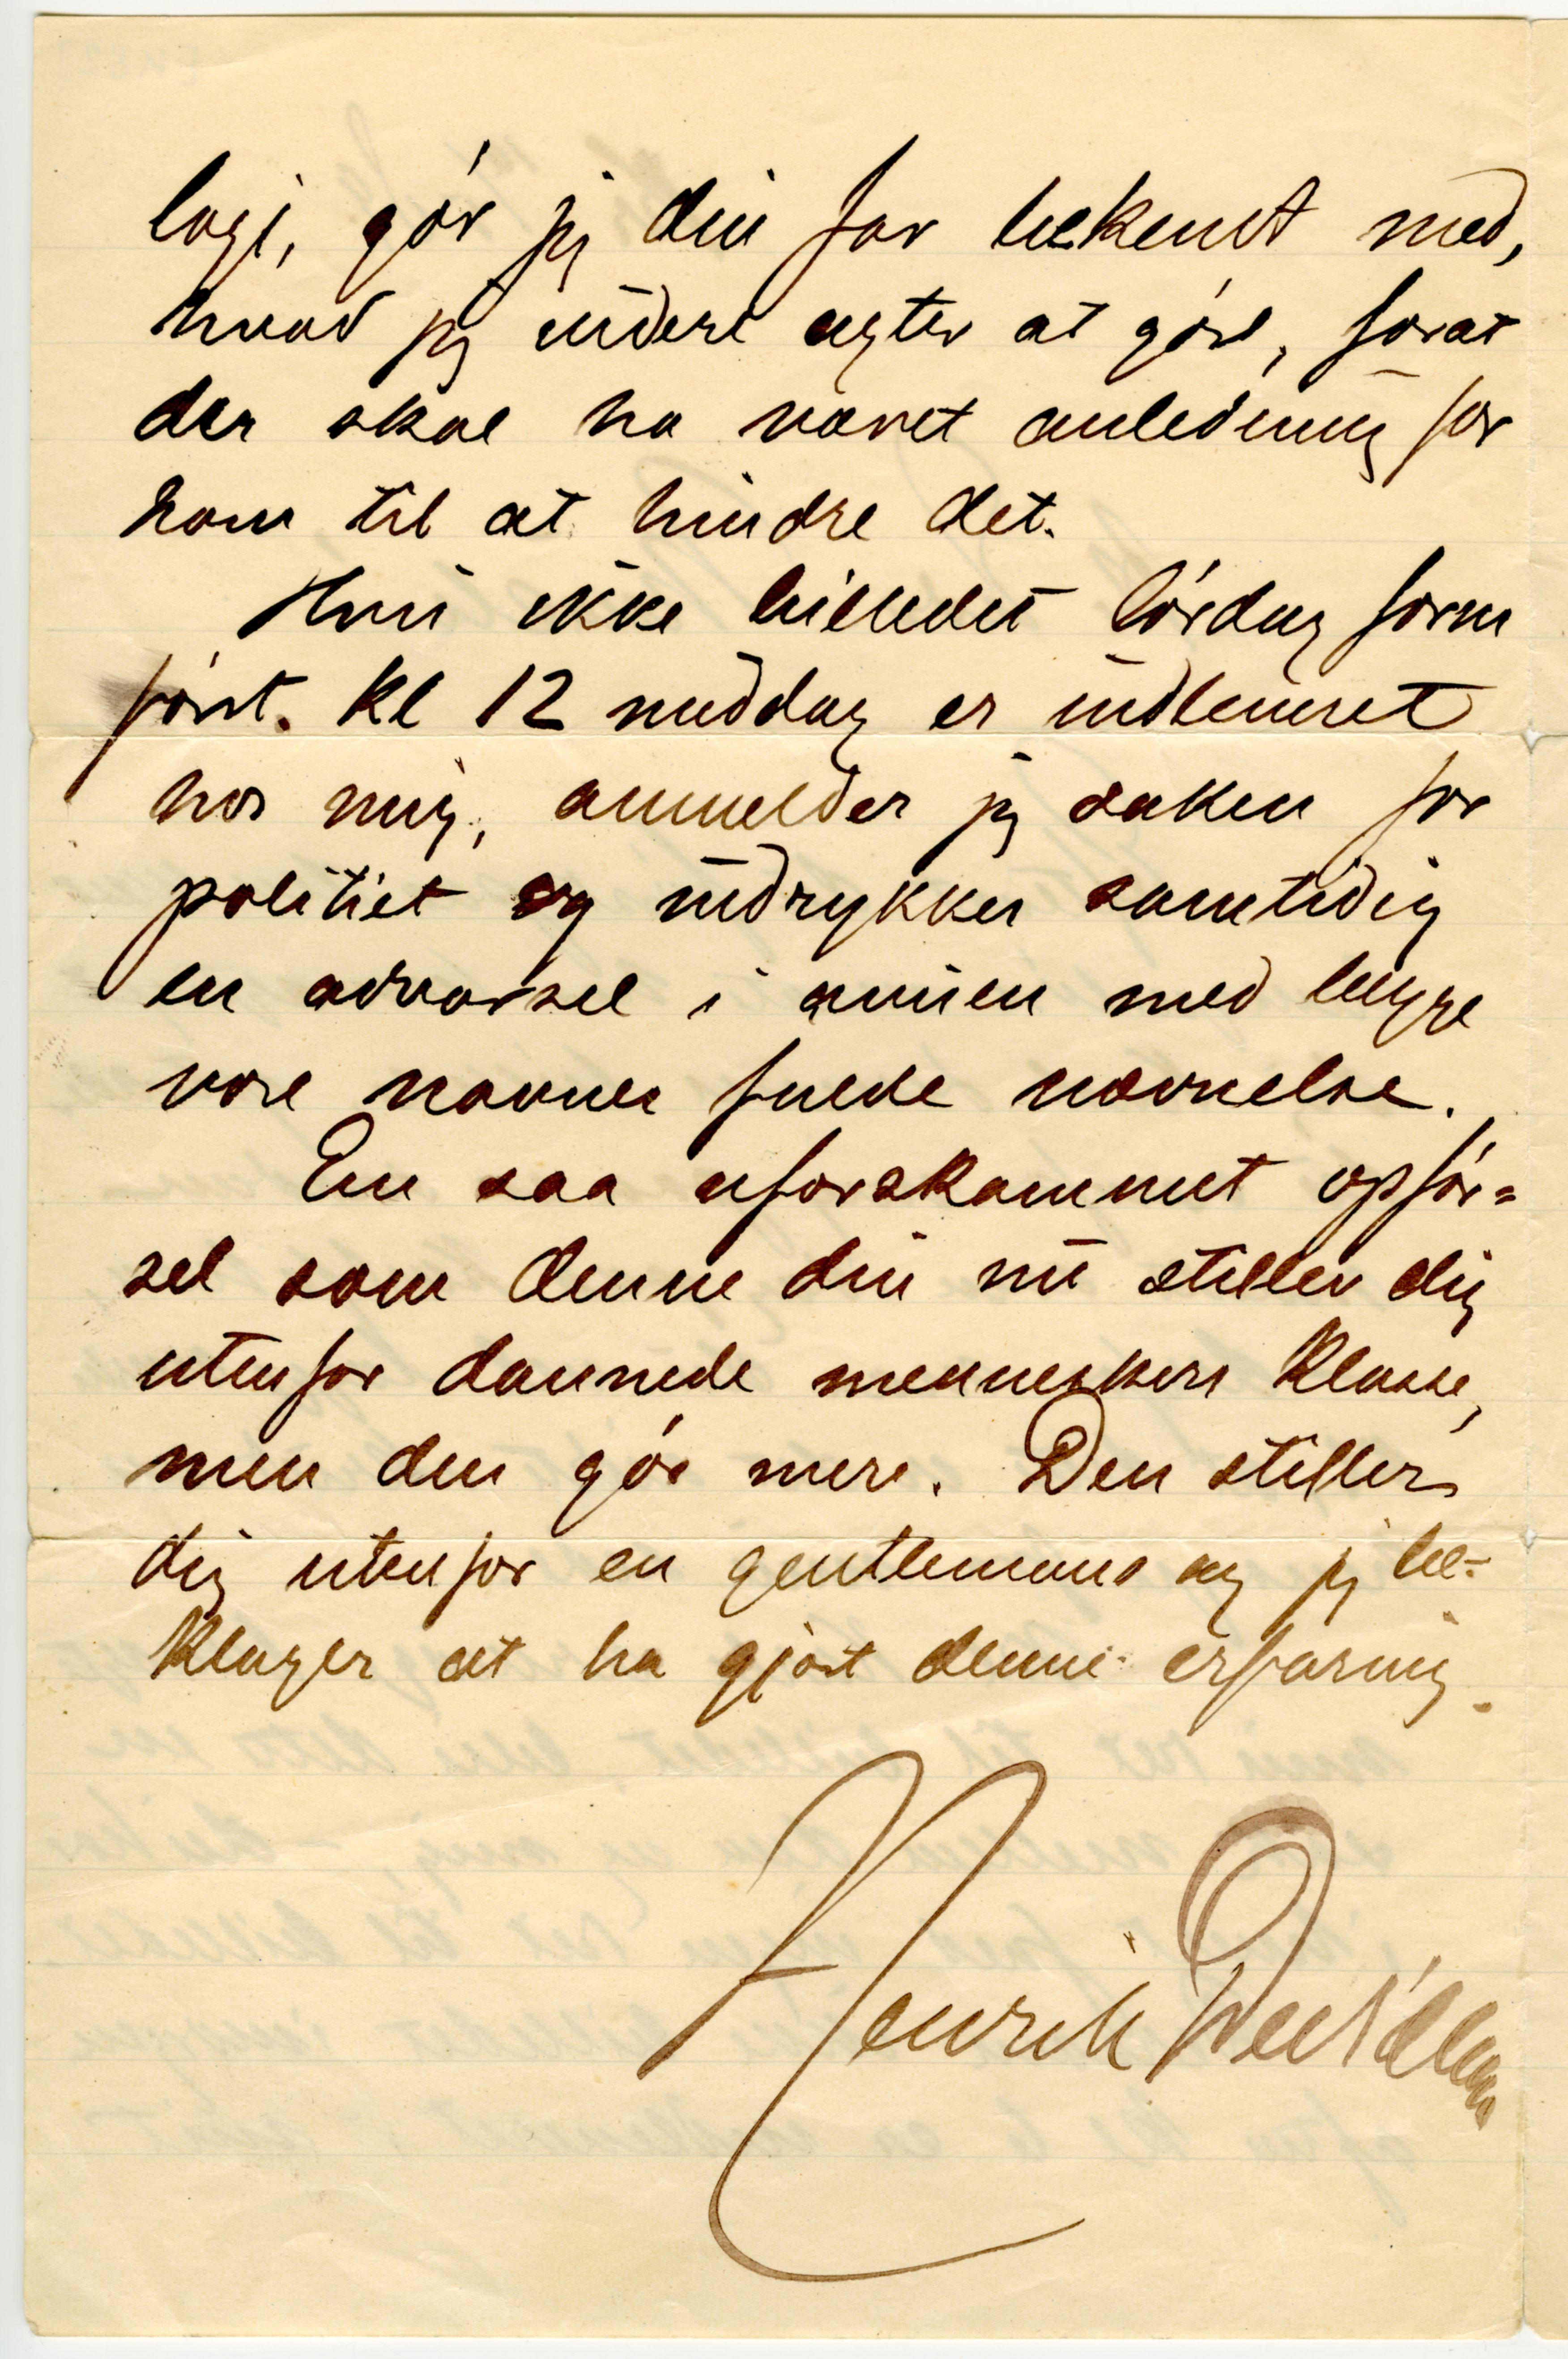 logi, gør jeg din far bekent med,
hvad jeg videre agter at gøre, forat
der skal ha været anledning for
ham til at hindre det.
Hvis ikke billedet lørdag form
først. kl 12 middag er indleveret
hos mig, anmelder jeg saken for
politiet og indrykker samtidig
en advarsel i avisen med begge
vore navnes fulde nævnelse.
En saa uforskammet opfør=
sel som denne din nu stiller dig
utenfor dannede menneskers klasse,
men den gør mere. Den stiller
dig utenfor en gentlemans og jeg be-
klager at ha gjort denne erfaring.
Henrik